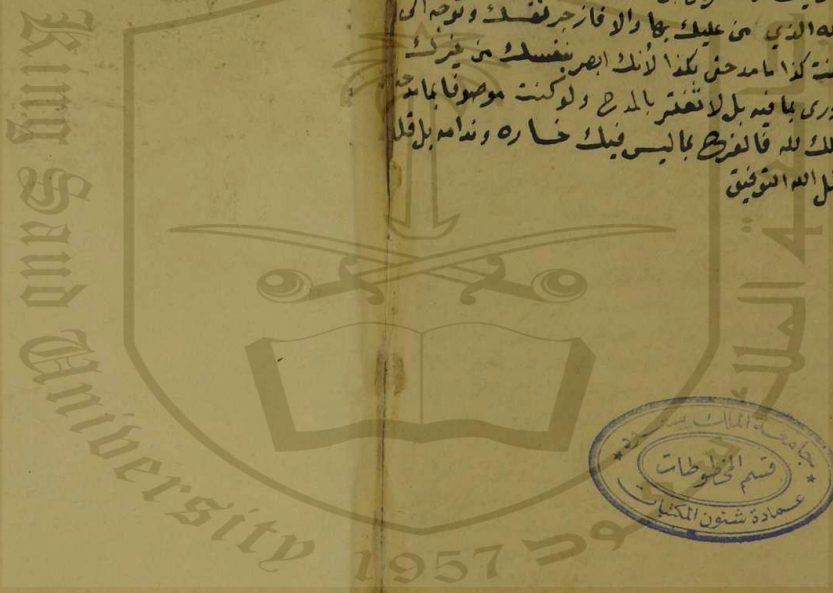 الذي من عليك بها والا فازجر نفسك وتوجه الى
كذا ما مدحتى بكذا لأنك ابصر بنفسك من غيرك
بما فيه بل لا تغتر بالمدح ولو كنت موصوفا بما
لله فالفرح بما ليس فيك خساره وندامه بل قل
الله التوفيق
جامعة الملك سعود
قسم المخطوطات
عمادة شئون المكتبات
King Saud University
1957
جامعة الملك سعود